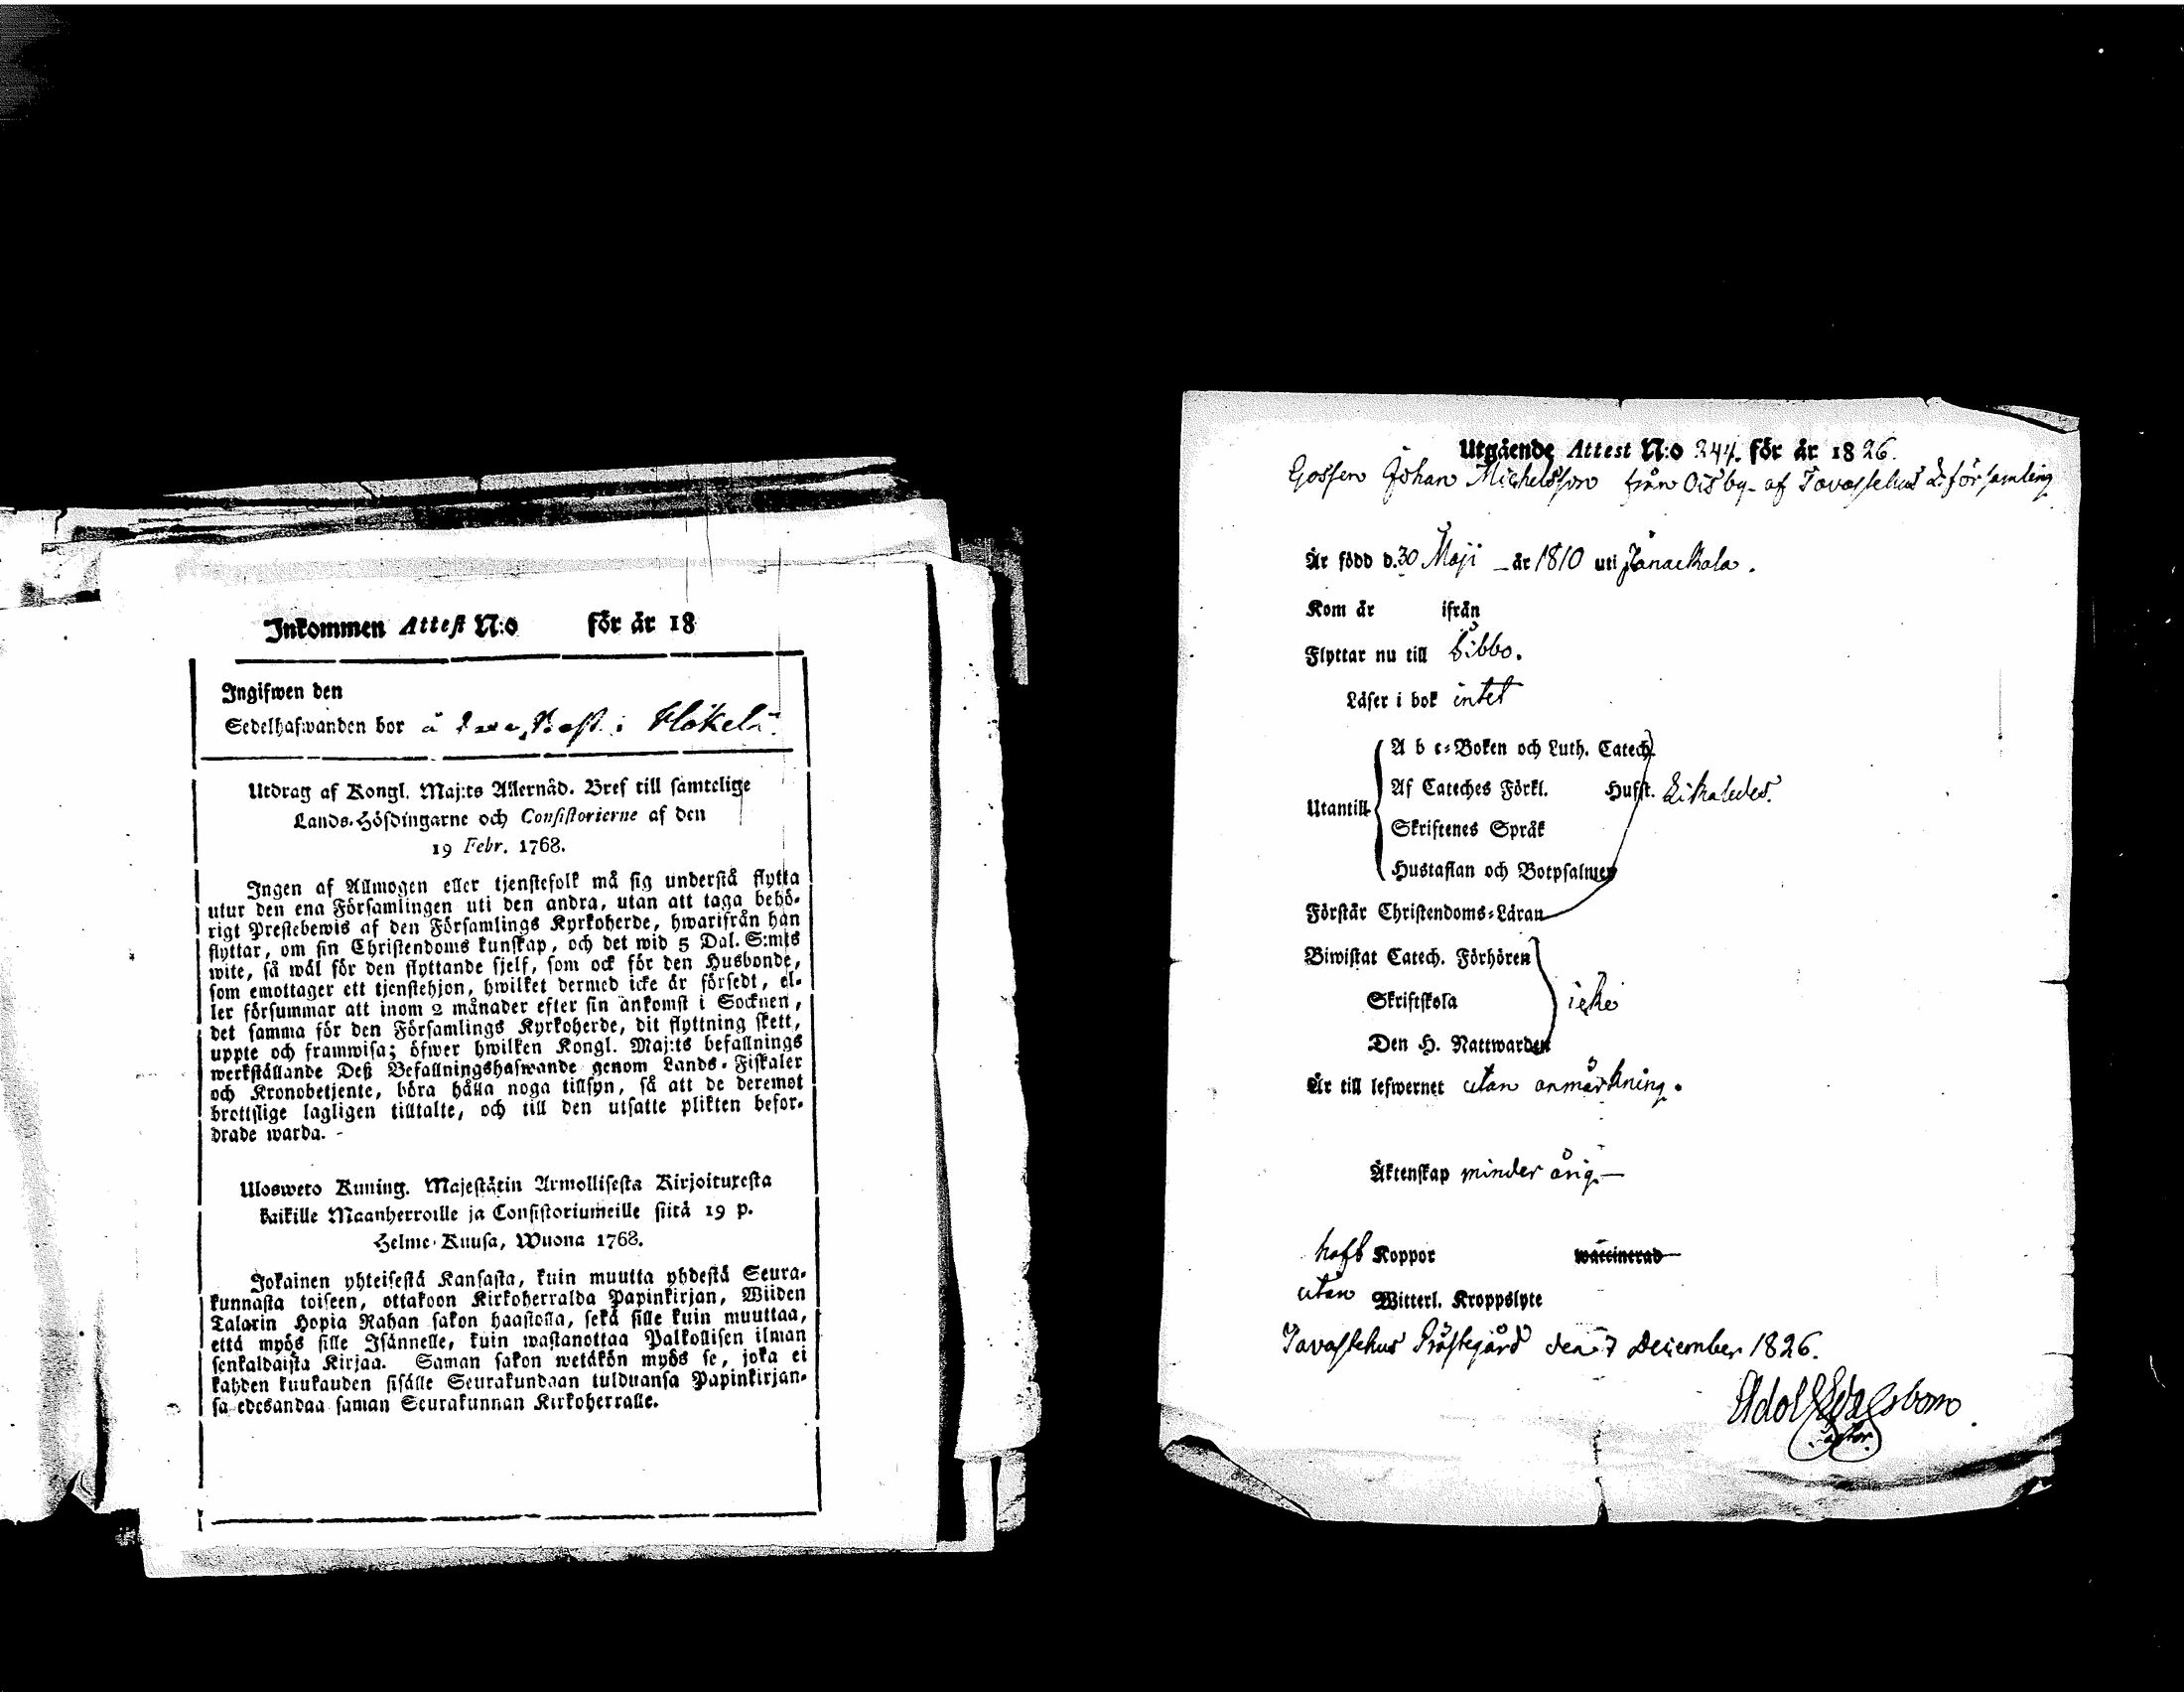 Inkommen Attest N:o för år 18
Ingifwen den
Sedelhafwanden bor å
Utdrag af Kongl. Maj:ts Allernåd. Bref till samtelige
Lands-Höfdingarne och Consistorierne af den
19 Febr. 1768.
Ingen af Allmogen eller tjenstefolk må sig understå flytta
utur den ena Församlingen uti den andra, utan att taga behö-
rigt Prestebewis af den Församlings Kyrkoherde, hwarifrån han
flyttar, om sin Christendoms kunskap, och det wid 5 Dal. S:mts
wite, så wäl för den flyttande sjelf, som ock för den Husbonde,
som emottager ett tjenstehjon, hwilket dermed icke är försedt, el-
ler försummar att inom 2 månader efter sin ankomst i Socknen,
det samma för den Församlings Kyrkoherde, dit flyttning skett,
uppte och framwisa; öfwer hwilken Kongl. Maj:ts befallnings
werkställande Deß Befallningshafwande genom Lands-Fiskaler
och Kronobetjente, böra hålla noga tillsyn, så att de deremot
brottslige lagligen tilltalte, och till den utsatte plikten befor-
drade warda. -
Ulosweto Kuning. Majestätin Armollisesta Kirjoituxesta
kaikille Maanherroille ja Consistoriumeille siitä 19 p.
Helme-Kuusa, Wuona 1768.
Jokainen yhteisestä Kansasta, kuin muutta yhdestä Seura-
kunnasta toiseen, ottakoon Kirkoherralda Papinkirjan, Wiiden
Talarin Hopia Rahan sakon haastolla, sekä sille kuin muuttaa,
että myös sille Isännelle, kuin wastanottaa Palkollisen ilman
senkaldaista Kirjaa. Saman sakon wetäkön myös se, joka ei
kahden kuukauden sisälle Seurakundaan tulduansa Papinkirjan-
sa edesandaa saman Seurakunnan Kirkoherralle.
Utgående Attest N:o 244. för år 1826.
Gossen Johan Michelsson från Oisby af Tavastehus L. församling
Är född d. 30 Maji år 1810 uti Janackala.
Kom år ifrån
Flyttar nu till Sibbo.
Läser i bok intet
Utantill
A b c-Boken och Luth. Catech.
Af Cateches Förkl. Husst. Likaledes.
Skriftenes Språk
Hustaflan och Botpsalmer
Förstår Christendoms-Läran
Biwistat Catech. Förhören
Skriftskola icke
Den H. Nattwarden
Är till lefwernet utan anmärkning.
Äktenskap minder årig -
haft Koppor waccinerad
utan Witterl. Kroppslyte
Tavastehus Prästegård den 7 December 1826.
Adolf
Pastor.